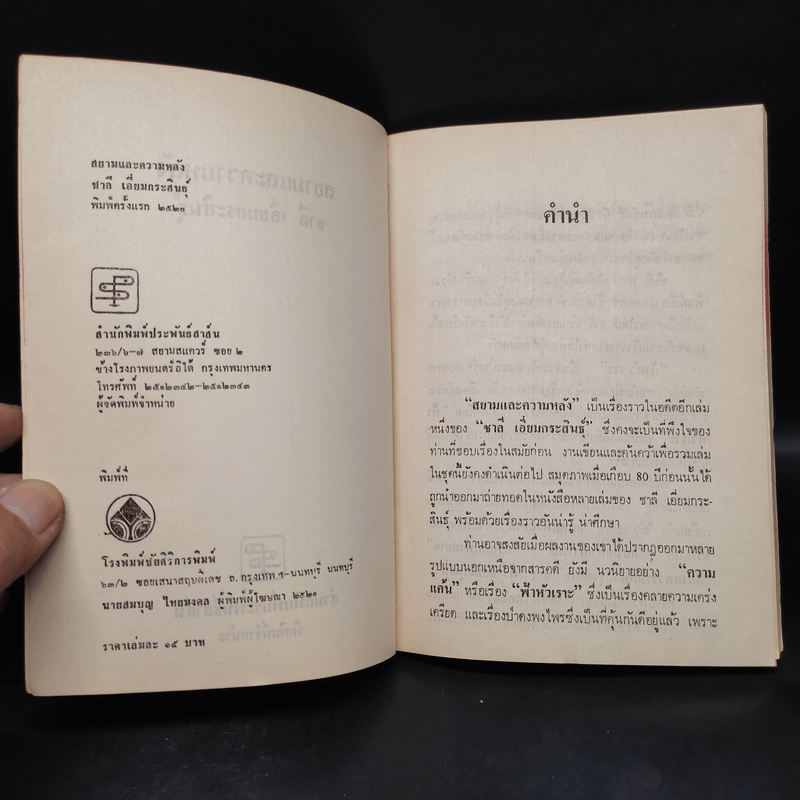 สยามและความหลัง
ชาลี เอี่ยมกระสินธุ์
พิมพ์ครั้งแรก ๒๕๒๐
สำนักพิมพ์ประพันธ์สาส์น
๒๓๖/๖-๗ สยามสแควร์ ซอย ๒
ข้างโรงภาพยนตร์ลิโด้ กรุงเทพมหานคร
โทรศัพท์ ๒๕๑๒๓๔๒-๒๕๑๒๓๔๓
ผู้จัดพิมพ์จำหน่าย
พิมพ์ที่
โรงพิมพ์ชัยศิริการพิมพ์
๖๓/๒ ซอยเสนาสฤษดิ์เดช ถ.กรุงเทพฯ-นนทบุรี นนทบุรี
นายสมบุญ ไทยมงคล ผู้พิมพ์ผู้โฆษณา ๒๕๒๐
ราคาเล่มละ ๑๕ บาท
คำนำ
“สยามและความหลัง” เป็นเรื่องราวในอดีตอีกเล่ม
หนึ่งของ “ชาลี เอี่ยมกระสินธุ์” ซึ่งคงจะเป็นที่พึงใจของ
ท่านที่ชอบเรื่องในสมัยก่อน งานเขียนและค้นคว้าเพื่อรวมเล่ม
ในชุดนี้ยังคงดำเนินต่อไป สมุดภาพเมื่อเกือบ 80 ปีก่อนนั้นได้
ถูกนำออกมาถ่ายทอดในหนังสือหลายเล่มของ ชาลี เอี่ยมกระ-
สินธุ์ พร้อมด้วยเรื่องราวอันน่ารู้ น่าศึกษา
ท่านอาจสงสัยเมื่อผลงานของเขาได้ปรากฏออกมาหลาย
รูปแบบนอกเหนือจากสารคดี ยังมี นวนิยายอย่าง “ความ
แค้น” หรือเรื่อง “ฟ้าหัวเราะ” ซึ่งเป็นเรื่องคลายความเคร่ง
เครียด และเรื่องป่าดงพงไพรซึ่งเป็นที่คุ้นกันดีอยู่แล้ว เพราะ